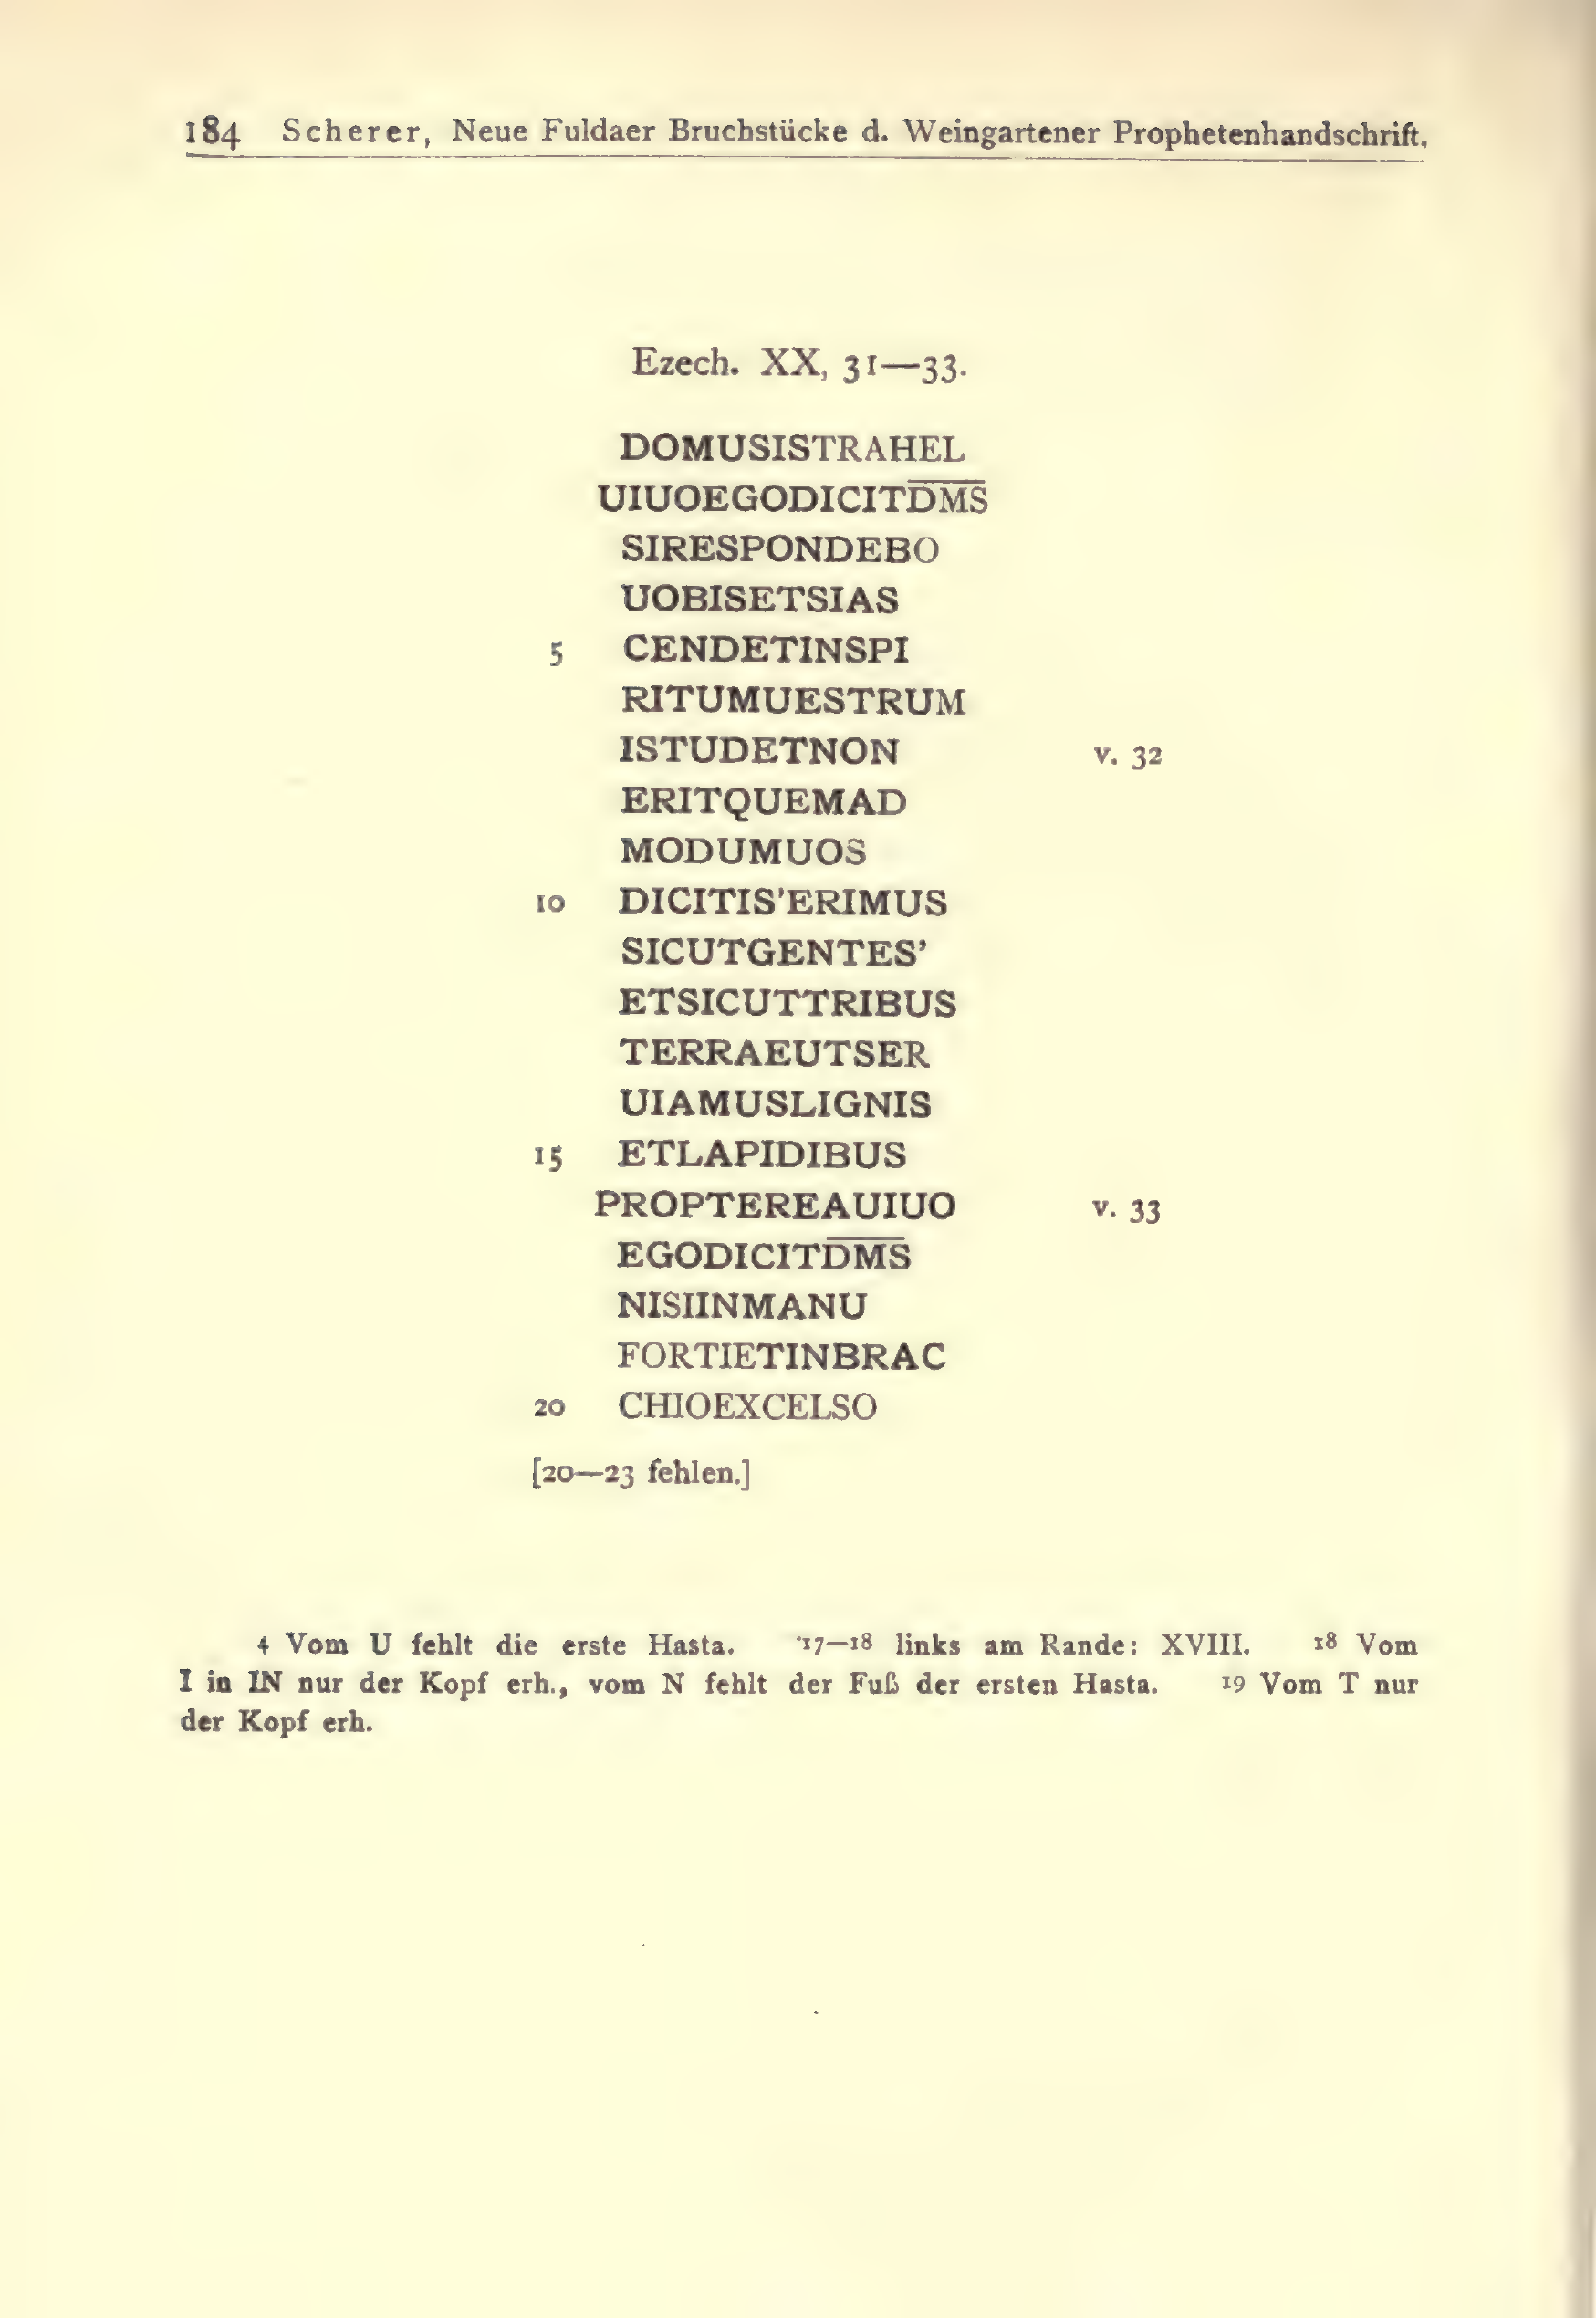 184 Scherer, Neue Fuldaer Bruchstücke d. Weingartener Prophetenhandschrift.
Ezech. XX, 31—33.
DOMUSISTRAHEL
UIUOEGODICITD̅M̅S̅
SIRESPONDEBO
UOBISETSIAS
5 CENDETINSPI
RITUMUESTRUM
ISTUDETNON v. 32
ERITQUEMAD
MODUMUOS
10 DICITIS’ERIMUS
SICUTGENTES’
ETSICUTTRIBUS
TERRAEUTSER
UIAMUSLIGNIS
15 ETLAPIDIBUS
PROPTEREAUIUO v. 33
EGODICITD̅M̅S̅
NISIINMANU
FORTIETINBRAC
20 CHIOEXCELSO
[20—23 fehlen.]
4 Vom U fehlt die erste Hasta. 17—18 links am Rande: XVIII. 18 Vom
I in IN nur der Kopf erh., vom N fehlt der Fuß der ersten Hasta. 19 Vom T nur
der Kopf erh.